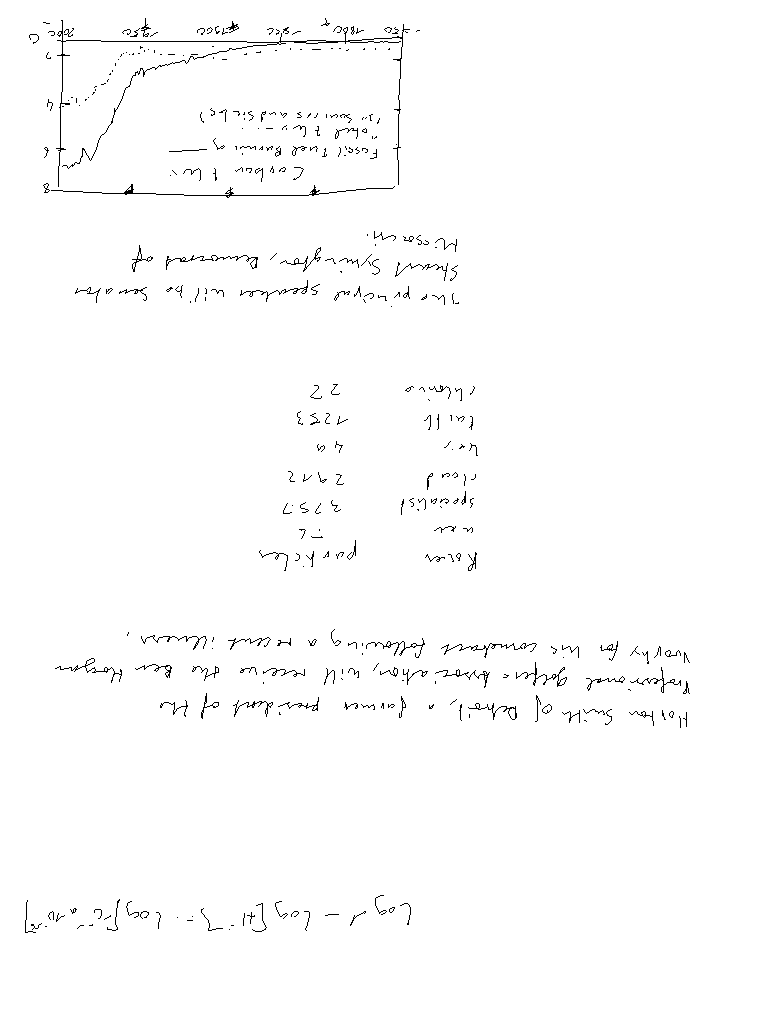 Log 1 - Log
Horton Smith of Detroit, a former president of the
Professional golfers Association, will receive the Ben Hogan
Trophy for his comeback following a recent illness,
particles
user
specialist 3757
cloud 2912
49
1253
chlorine 22
The principal speaker will be Senator
Stuart Symington, Democrat of
Missouri.
8
Carbon
6 Fossil Fuel Burning
sources and
4
2
0
1800 1850 1900 1950 2000